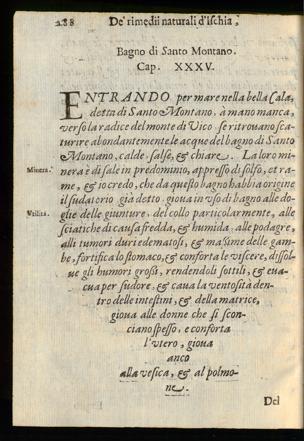 288 De' rimedii naturali d'Ischia,
Bagno di Santo Montano.
Cap. XXXV.
ENTRANDO per mare nella bella Cala,
detta di Santo Montano, à mano manca,
verso la radice del monte di Vico se ritrouano sca-
turire abondantemente le acque del bagno di Santo
Montano, calde, salse, & chiare. La loro mi-
Minera. nera è di sale in predominio, appresso di solfo, et ra-
me, & io credo, che da questo bagno habbia origine
il sudatorio già detto. gioua in vso di bagno alle do-
Vtilità. glie delle giunture, del collo particolarmente, alle
sciatiche di causa fredda, & humida, alle podagre,
alli tumori duri edematosi, & massime delle gam-
be, fortifica lo stomaco, & conforta le viscere, dissol-
ue gli humori grossi, rendendoli sottili, & eua-
cua per sudore, & caua la ventosità den-
tro delle intestini, & della matrice,
gioua alle donne che si scon-
ciano spesso, e conforta
l'vtero, gioua
anco
alla vesica, & al polmo-
ne.
Del